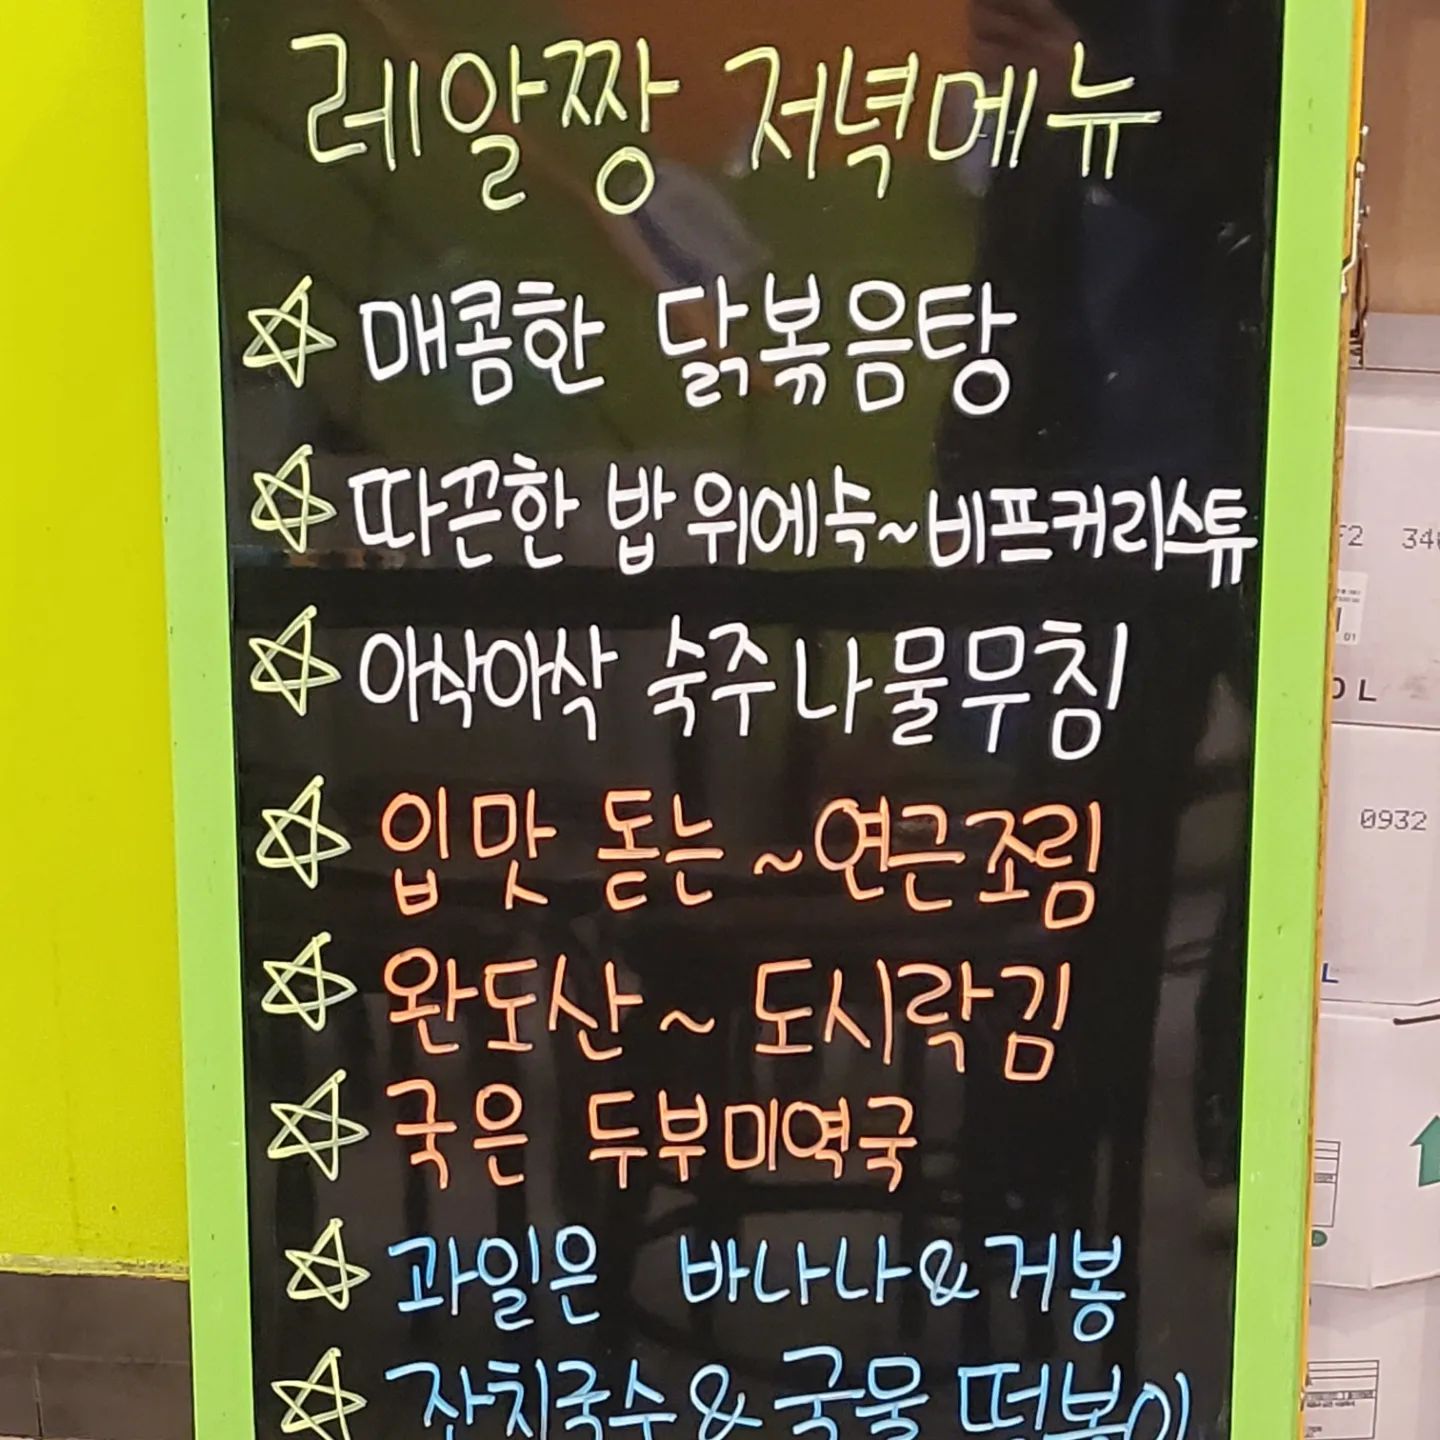 레알짱 저녁메뉴
☆ 매콤한 닭볶음탕
☆ 따끈한 밥 위에슥~비프커리스튜
☆ 아삭아삭 숙주나물무침
☆ 입맛 돋는 ~연근조림
☆ 완도산~ 도시락김
☆ 국은 두부미역국
☆ 과일은 바나나&거봉
☆ 잔치국수&국물 떡볶이
F2 340
01
0 L
0932
L